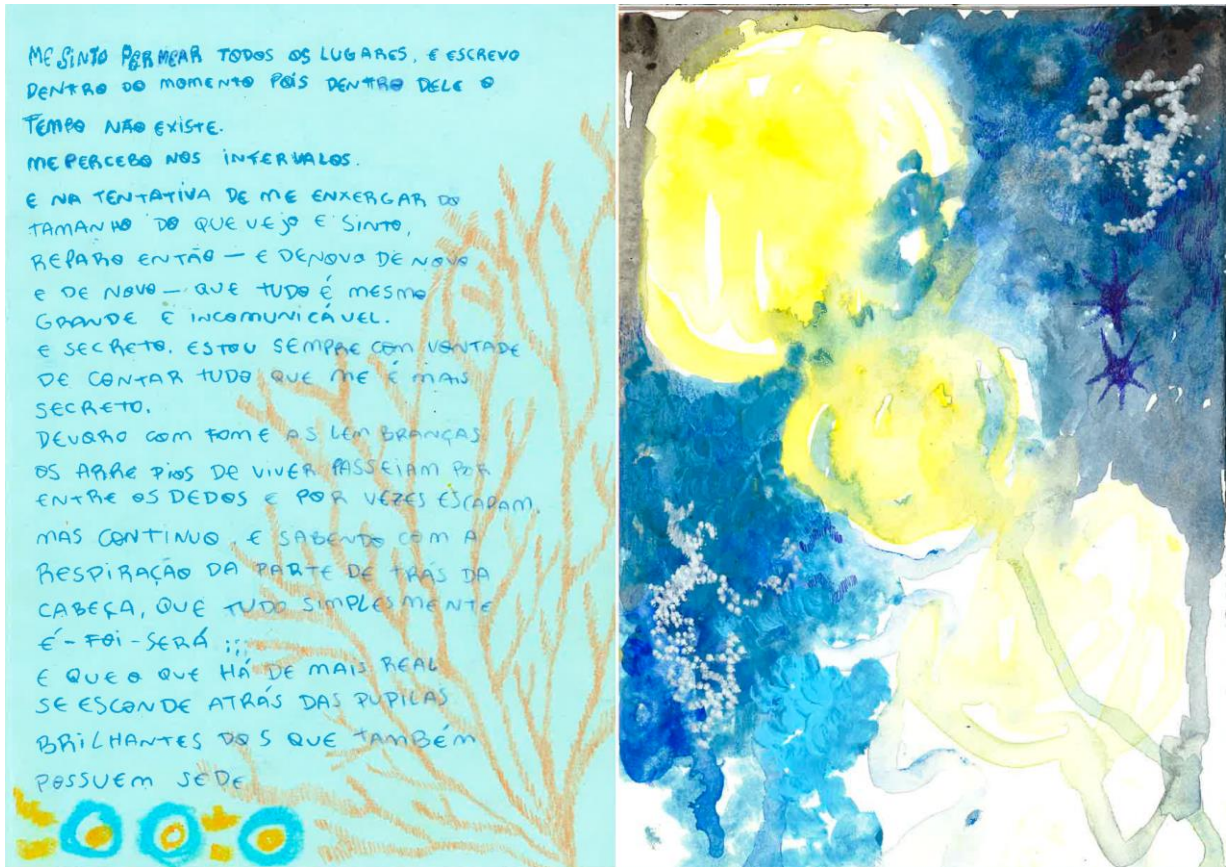 ME SINTO PERMEAR TODOS OS LUGARES. E ESCREVO
DENTRO DO MOMENTO POIS DENTRO DELE O
TEMPO NÃO EXISTE.
ME PERCEBO NOS INTERVALOS.
E NA TENTATIVA DE ME ENXERGAR DO
TAMANHO DO QUE VEJO E SINTO,
REPARO ENTÃO — E DENOVO DE NOVO
E DE NOVO — QUE TUDO É MESMO
GRANDE E INCOMUNICÁVEL.
E SECRETO. ESTOU SEMPRE COM VONTADE
DE CONTAR TUDO QUE ME É MAIS
SECRETO.
DEVORO COM FOME AS LEMBRANÇAS.
OS ARREPIOS DE VIVER PASSEIAM POR
ENTRE OS DEDOS E POR VEZES ESCAPAM.
MAS CONTINUO. E SABENDO COM A
RESPIRAÇÃO DA PARTE DE TRÁS DA
CABEÇA, QUE TUDO SIMPLESMENTE
É - FOI - SERÁ ;;;
E QUE O QUE HÁ DE MAIS REAL
SE ESCONDE ATRÁS DAS PUPILAS
BRILHANTES DOS QUE TAMBÉM
POSSUEM SEDE